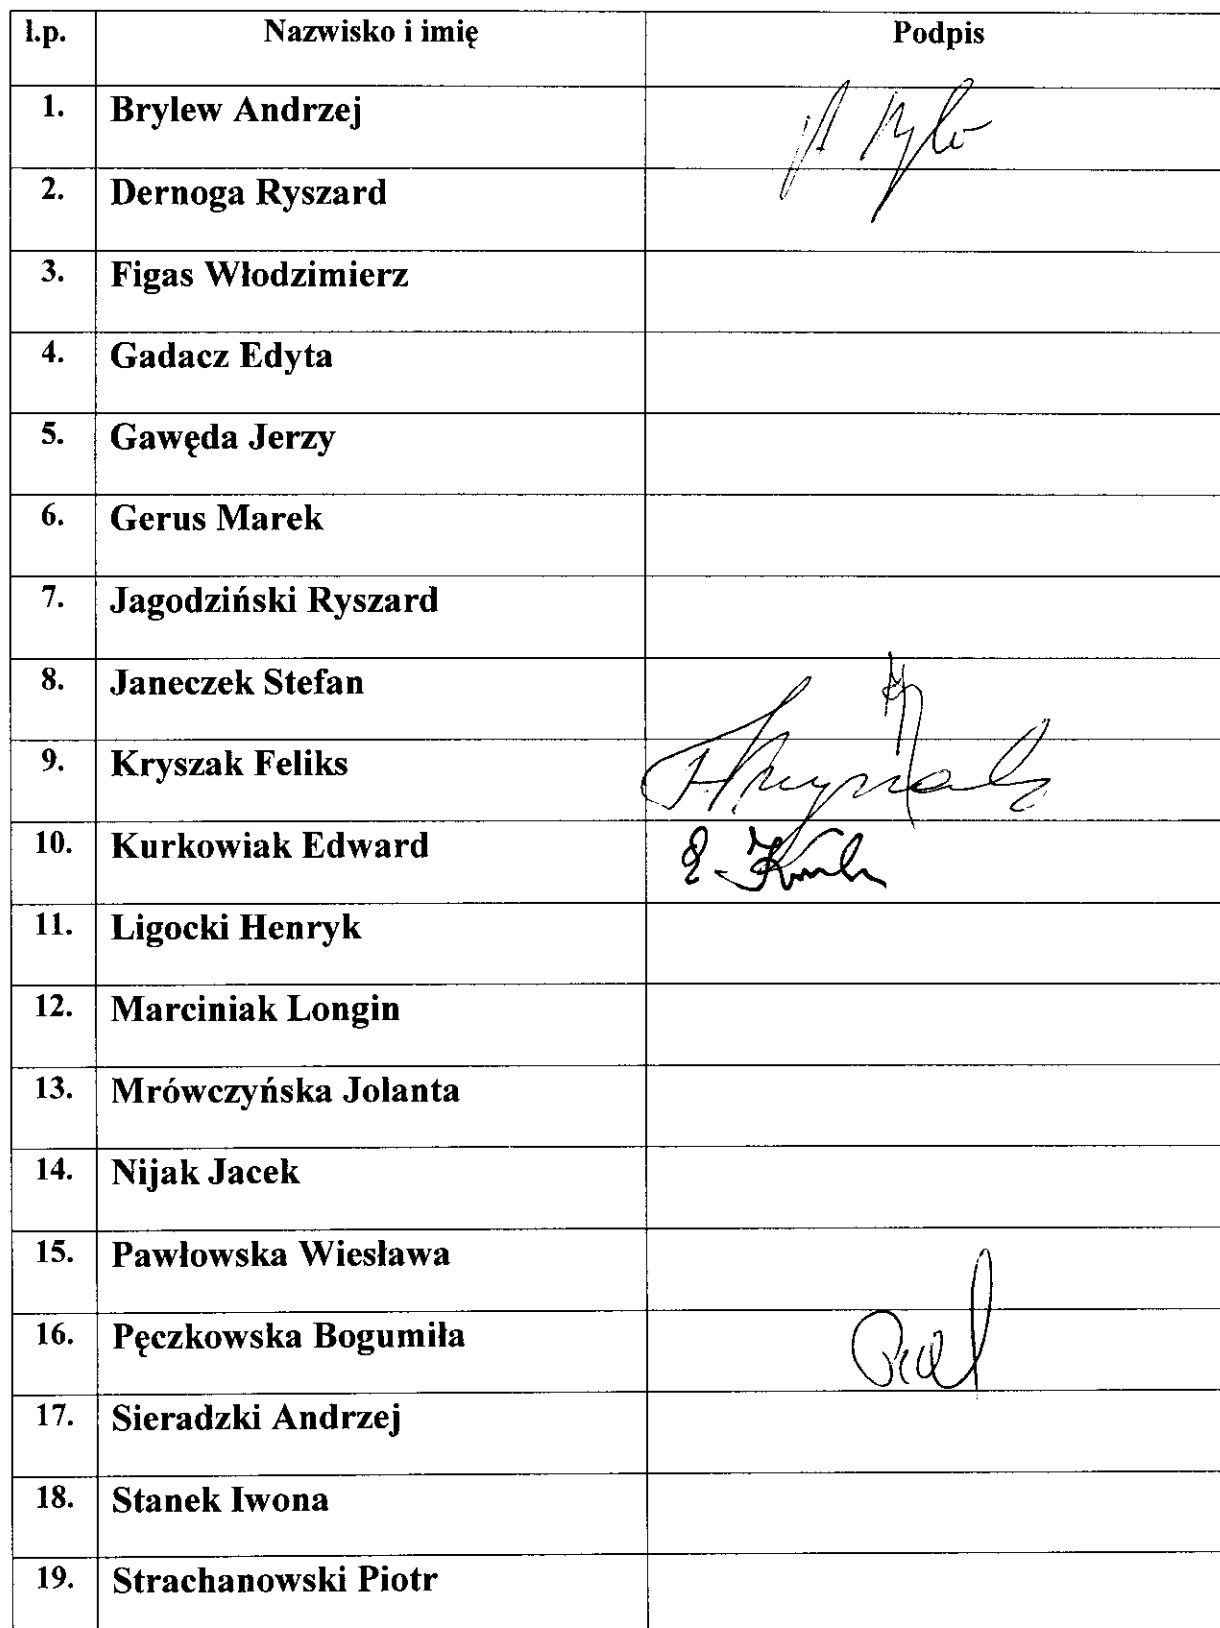 l.p. Nazwisko i imię Podpis
1. Brylew Andrzej
2. Dernoga Ryszard
3. Figas Włodzimierz
4. Gadacz Edyta
5. Gawęda Jerzy
6. Gerus Marek
7. Jagodziński Ryszard
8. Janeczek Stefan
9. Kryszak Feliks
10. Kurkowiak Edward
11. Ligocki Henryk
12. Marciniak Longin
13. Mrówczyńska Jolanta
14. Nijak Jacek
15. Pawłowska Wiesława
16. Pęczkowska Bogumiła
17. Sieradzki Andrzej
18. Stanek Iwona
19. Strachanowski Piotr